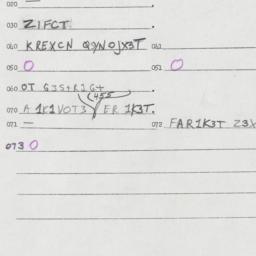 020 —
030 ZIFCT
040 KREXCN QYNOJX3T 041
050 O 051 O
060 OT G3S+R1G+
455
070 A 1K1VOT3 / ER 1K3T.
071 — 072 FAR1K3T Z3X
073 O